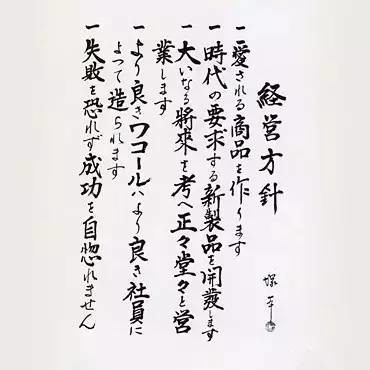 経営方針
一 愛される商品を作ります
一 時代の要求する新製品を開發します
一 大いなる將來を考へ正々堂々と営
業します
一 より良きワコールハより良き社員に
よつて造られます
一 失敗を恐れず成功を自惚れません